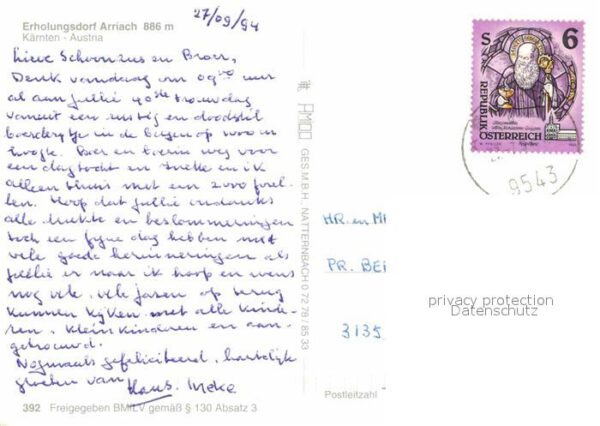 Erholungsdorf Arriach 886 m
Kärnten - Austria
27/09/94
Lieve Schoonzus en Broer,
Denk vandaag om 09⁰⁰ uur
al aan jullie 40ste trouwdag
vanuit een rustig en doodstil
boerderijtje in de bergen op 1000 m
hoogte. Boer en boerin weg voor
een dagtocht en Ineke en ik
alleen thuis met een 2000
Hoop dat jullie ondanks
alle ziekte en beslommeringen
toch een fijne dag hebben met
vele goede herinneringen als
jullie er naar ik hoop en wens
nog vele, vele jaren op terug
kunnen kijken met alle kinde-
ren, kleinkinderen en aan-
getrouwd.
Nogmaals gefeliciteerd, hartelijke
groeten van Hans. Ineke
392 Freigegeben BMfLV gemäß § 130 Absatz 3
AMOO GES.M.B.H., NATTERNBACH 0 72 78 / 85 33
S 6
REPUBLIK
ÖSTERREICH
9543
HR. en M
PR. BE
3135
privacy protection
Datenschutz
Postleitzahl